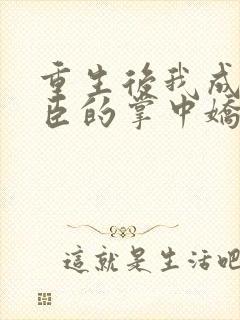 重生後我成
臣的掌中嬌
這就是生活吧